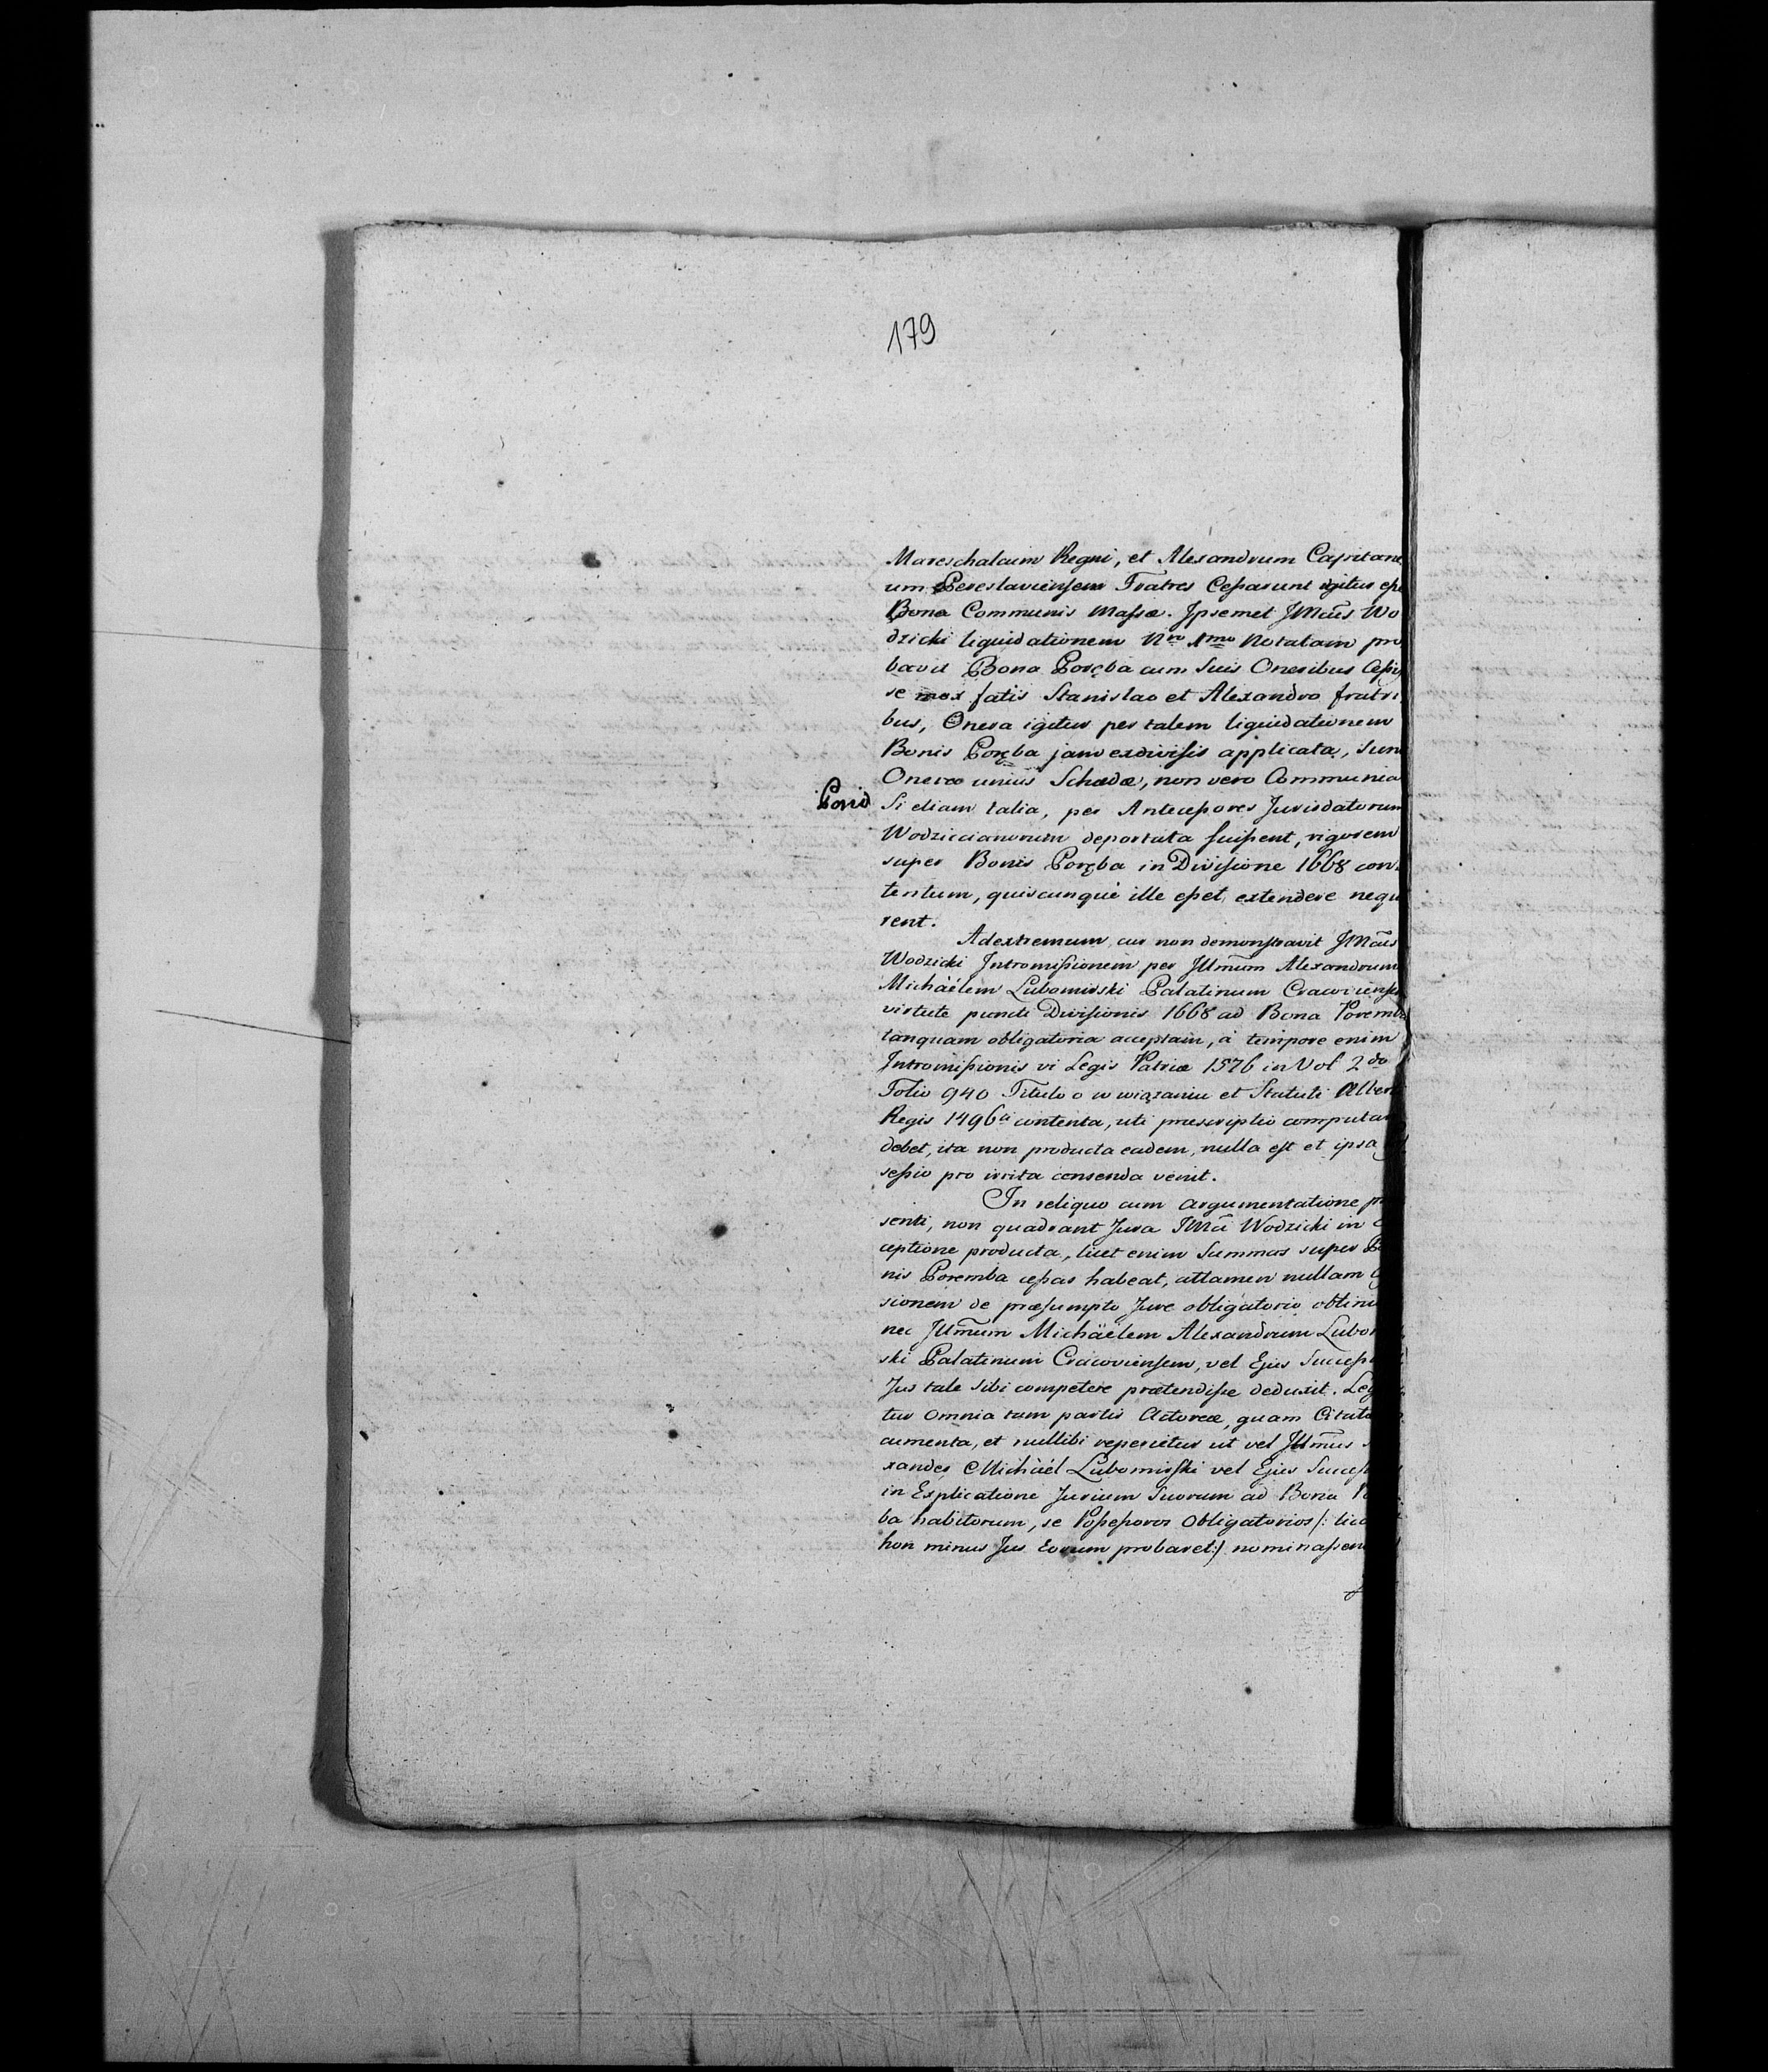 179
Mareschalcum Regni, et Alexandrum Capitane
um Pereslaviensem Fratres Cessarunt igitur esse
Bona Communis Massæ. Ipsemet JMcus Wo
dzicki liquidationem Nro 1mo Notatam pro
bavit Bona Poręba cum Suis Oneribus Cessis
se mox fatis Stanislao et Alexandro fratri
bus, Onera igitur per talem liquidationem
Bonis Poręba jam exdivisis applicata, Sun
Onera unius Schedæ, non vero Communia
Si etiam talia, per Antecessores Jurisdatorum
Wodziccianorum deportata fuissent, rigorem
super Bonis Poręba in Divisione 1668 con
tentum, quiscunque ille esset, extendere nequi
rent.
Adextremum, cur non demonstravit JMcus
Wodzicki Intromissionem per Jllmum Alexandrum
Michäelem Lubomirski Palatinum Cracoviensem
virtute puncti Divisionis 1668 ad Bona Poremba
tanquam obligatoria acceptam, à tempore enim
Intromissionis vi Legis Patriæ 1576 in Vol 2do
Folio 940 Titulo o w wiązaniu et Statuti Alberti
Regis 1496 contenta, uti præscriptio computari
debet, ita non producta eadem, nulla est et ipsa
sessio pro irrita censenda venit.
In reliquo cum argumentatione præ
senti, non quadrant Jura JMci Wodzicki in
ceptione producta, licet enim Summas super Bo
nis Poremba cessas habeat, attamen nullam
sionem de præsumpto Jure obligatorio obtinu
nec Jllmum Michäelem Alexandrum Lubomir
ski Palatinum Cracoviensem, vel Ejus Success
Jus tale sibi competere prætendisse deduxit. Leg
tur omnia tam partis Actoreæ, quam Citat
cumenta, et nullibi reperietur ut vel Jllmus
xander Michäél Lubomirski vel Ejus Success
in Explicatione Jurium Suorum ad Bona Po
ba habitorum, se Possessores Obligatorios /: lic
hon minus Jus Eorum probaret:/ nominassen